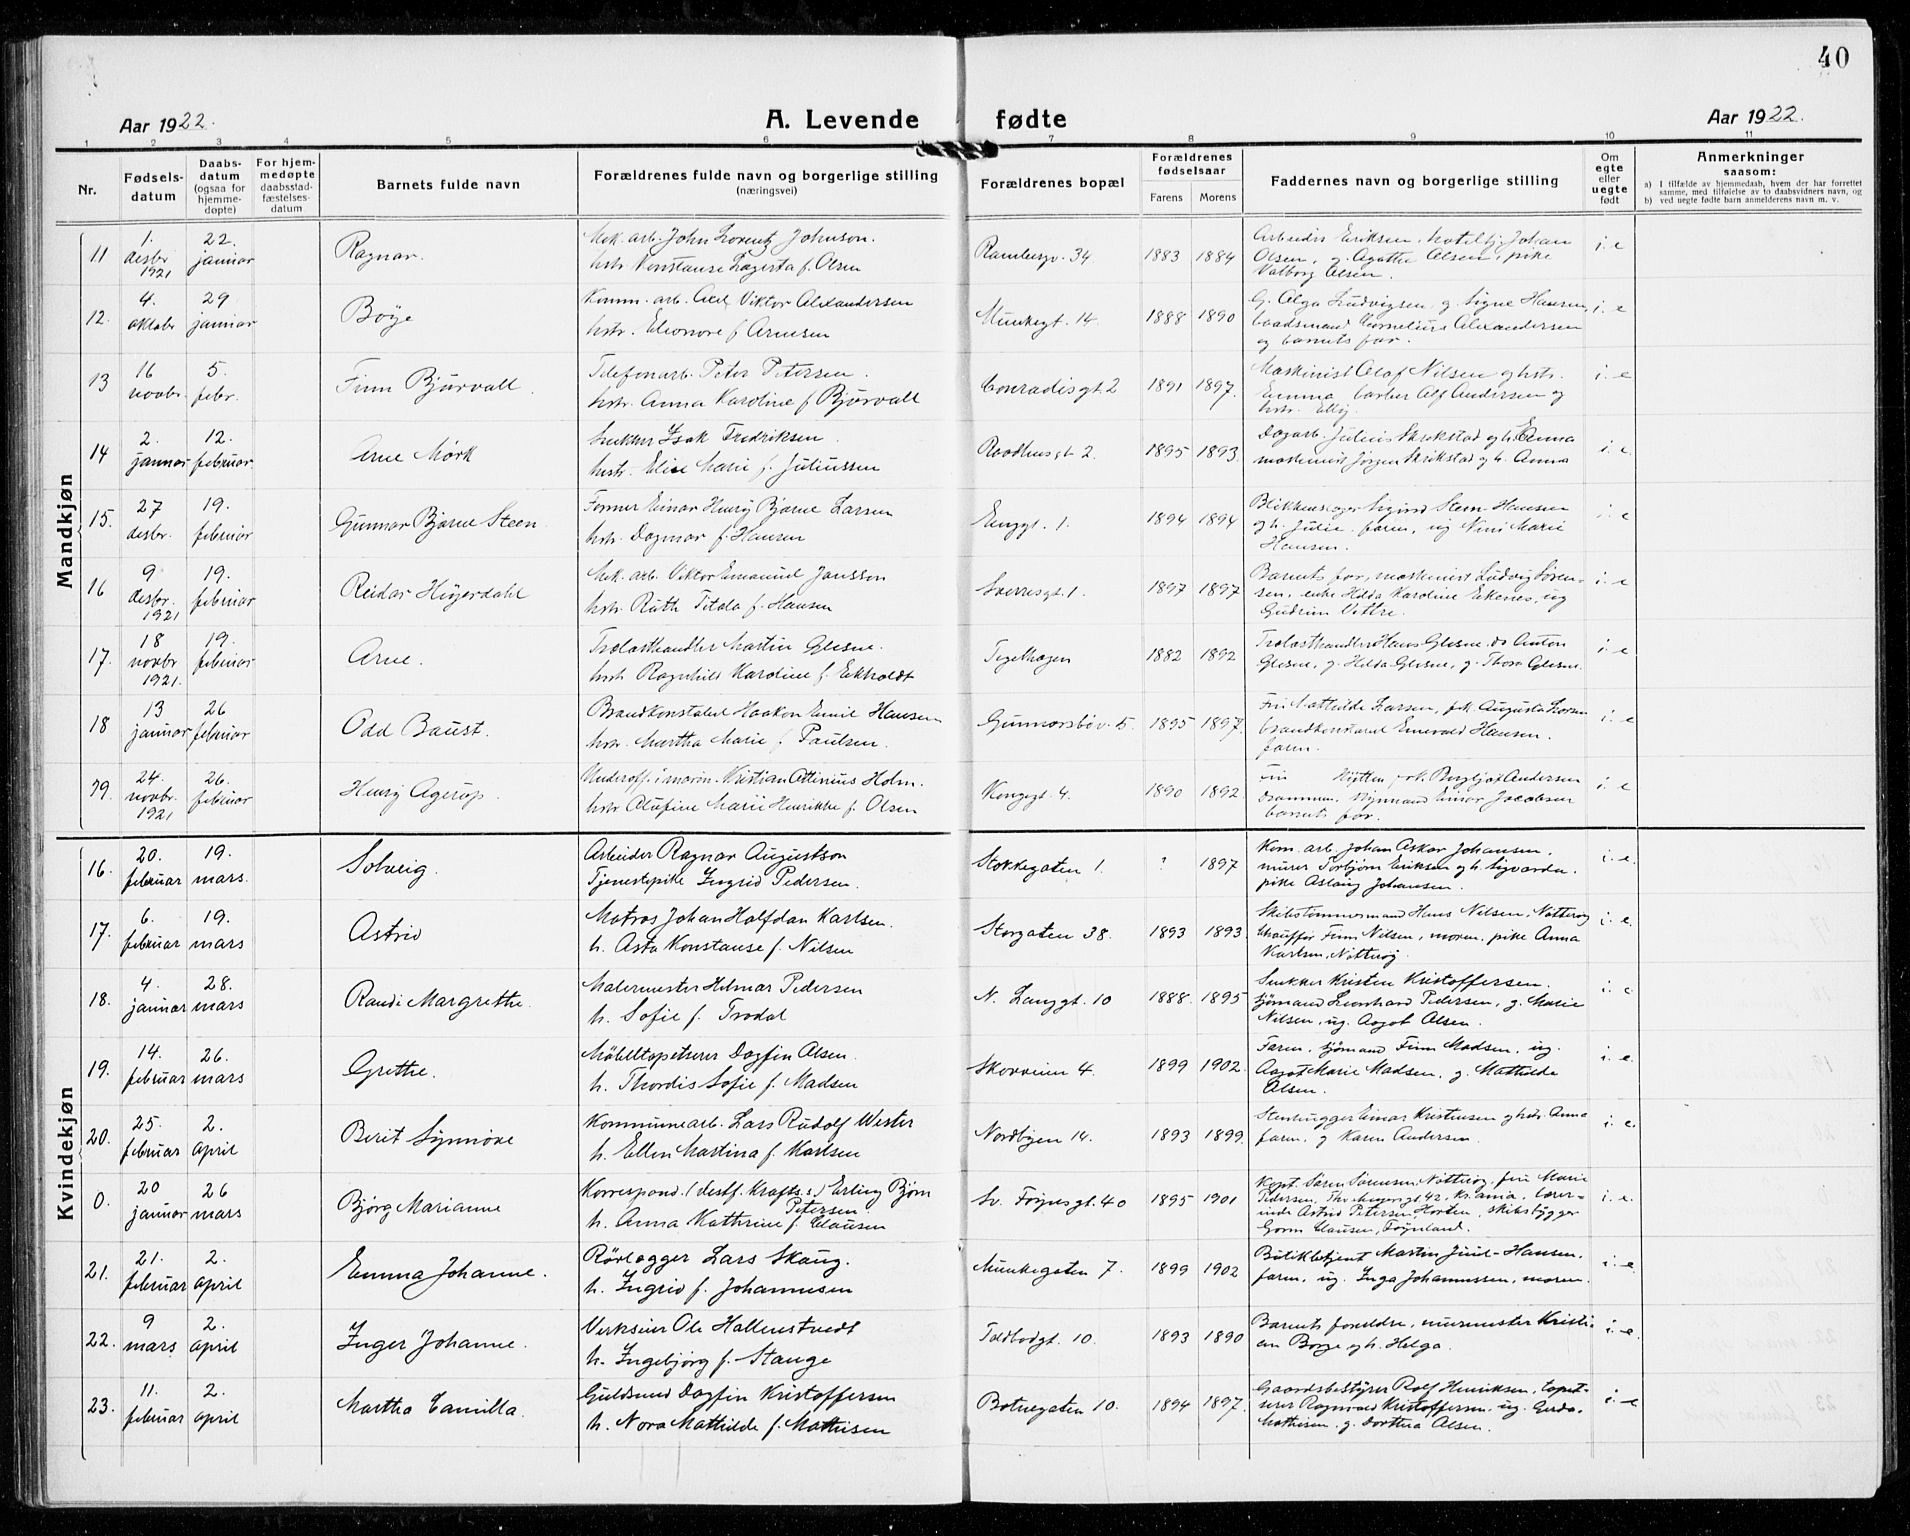 40
Aar 1922.
A. Levende fødte
Aar 1922.
1 2 3 4 5 6 7 8 9 10 11
Nr.
Fødsels-
datum
Daabs-
datum
(ogsaa for
hjemme-
døpte)
For hjem-
medøpte
daabsstad-
fæstelses-
datum
Barnets fulde navn
Forældrenes fulde navn og borgerlige stilling
(næringsvei)
Forældrenes bopæl
Forældrenes
fødselsaar
Farens Morens
Faddernes navn og borgerlige stilling
Om
egte
eller
uegte
født
Anmerkninger
saasom:
a) I tilfælde av hjemmedaab, hvem der har forrettet
samme, med tilføielse av to daabsvidners navn, og
b) ved uegte fødte barn anmelderens navn m. v.
Mandkjøn
11
1. desbr 1921
22. januar
Ragnar.
Mek. arb. John Lorentz Johnson.
hstr. Konstanse Lagerta f. Olsen
Rambergv. 34.
1883 1884
Arbeider Eriksen, Johan
Olsen, g. Agathe Olsen, pike
Valborg Olsen.
i. e
12.
4. oktobr
29 januar
Böye
Komm. arb. Axel Viktor Alexandersen
hstr. Eleonore f. Arnesen
Munkegt. 14.
1888 1890
G. Olga Ludvigsen, g. Signe Hansen,
baadsmand Kornelius Alexandersen
og barnets far.
i. e
13
16 novbr.
5. febr.
Finn Bjurvall.
Telefonarb. Peter Petersen.
hstr. Anna Karoline f. Bjurvall
Conradisgt. 2
1891 1897.
Maskinist Olaf Nilsen og hstr.
Emma, barber Alf Andersen og
hstr. Elly.
i. e
14
2. januar
12. februar.
Arne Mörk
Snekker Isak Fredriksen.
hustr. Elise Marie f. Juliussen
Raadhusgt 2.
1895 1893.
Dagarb. Julius Skrikstad og h. Emma
maskinist Jörgen Skrikstad og h. Anna
i. e.
15.
27 desbr.
19. februar
Gunnar Bjarne Steen.
Former Einar Henry Bjarne Larsen
hstr. Dagmar f. Hansen
Enggt. 1.
1894 1894
Blikkenslager Sigurd Steen Hansen
og h. Julie, faren, ug Nini Marie
Hansen.
i. e
16
9 desbr. 1921
19. februar
Reidar Högerdahl
Mek. arb. Viktor Emanuel Jansson
hstr. Ruth Titda f. Hansen
Sverresgt. 1.
1897 1897
Barnets far, maskinist Ludvig Sören-
sen, enke Hilda Karoline Ekenes, ug
Gudrun Vettre.
i. e
17.
18 novbr 1921.
19. februar
Arne.
Trælasthandler Martin Glesne.
hstr Ragnhild Karoline f. Ekholdt
Teglhagen
1882 1892
Trælasthandler Hans Glesne, do Anton
Glesne, g. Hilda Glesne, g. Thora Glesne.
i. e
18
13 januar
26 februar
Odd Baust.
Brandkonstabel Haakon Emil Hansen
hstr. Martha Marie f. Paulsen.
Gunnarsböv. 5
1895 1897.
Fru Mathilde Larsen, frk. Augusta Larsen
brandkonstabel Emerald Hansen.
faren.
i. e
19.
24. novbr. 1921
26. februar
Henry Agerup.
Underoff. i marin. Kristian Ottinius Holm.
hstr Olufine Marie Henrikke f. Olsen
Kongegt. 4.
1890 1892.
Fru Hytten, frk. Bergljot Andersen
Drammen, styrmand Einar Jacobsen
barnets far.
i. e
Kvindekjøn
16.
20. februar
19. mars.
Solveig.
Arbeider Ragnar Augustson
Tjenestepike Ingrid Pedersen.
Stokkegaten 1.
? 1897
Kom. arb. Johan Oskar Johansen.
murer Torbjörn Eriksen og h. Sigvarda.
pike Aslaug Johansen.
i. e.
17.
6. februar
19. mars
Astrid
Matros Johan Halfdan Karlsen.
h. Asta Konstanse f. Nilsen
Storgaten 38.
1893 1893.
Skibstömmermand Hans Nilsen, Nötteröy
Chaufför Finn Nilsen, moren, pike Anna
Karlsen, Nötteröy.
i. e
18.
4. januar
28. mars
Randi Margrethe.
Malermester Hilmar Pedersen
h. Sofie f. Trodal
N. Langgt. 10
1888. 1895
Snekker Kristen Kristoffersen.
sjömand Leonhard Pedersen, g. Marie
Nilsen, ug. Aagot Olsen.
i. e
19.
14. februar
26. mars
Grethe.
Möbeltapetserer Dagfin Olsen.
h. Thordis Sofie f. Madsen
Skovveien 4.
1899 1902.
Faren, sjömand Finn Madsen, ug.
Aagot Marie Madsen, g. Mathilde
Olsen.
i. e.
20.
25. februar
2. april
Berit Synnöve
Kommunearb. Lars Rudolf Wester
h. Ellen Martina f. Karlsen
Nordbyen 14.
1893 1899.
Stenhugger Einar Kristensen og hstr. Anna
faren, g Karen Andersen.
i. e.
0.
20 januar
26 mars
Bjørg Marianne
Korrespond. (Vestf. krafts.s.) Erling Bjørn
Petersen
h. Anna Kathrine f. Clausen
Sv. Foynsgt. 40
1895 1901
Kapt. Sören Sörensen, Nötteröy, fru Marie
Pedersen, 42, Kr.ania, lærer-
inde Astrid Petersen Horten, skibsbygger
Gorm Clausen, Foynland.
i. e.
21.
21. februar
2. april
Emma Johanne.
Rörlegger Lars Skaug.
h. Ingrid f. Johannesen
Munkegaten 7.
1899 1902
Butikbetjent Martin Juul-Hansen.
faren, ug. Inga Johannessen, moren.
i. e.
22.
9 mars
2. april
Inger Johanne.
Verkseier Ole Hallenstvedt
h. Ingebjörg f. Stange
Toldbodgt. 10.
1893 1890
Barnets foreldre, murmester Kristi-
an Borge og h. Helga.
i. e.
23.
11. februar
2. april
Martha Camilla.
Guldsmed Dagfin Kristoffersen
h. Nora Mathilde f. Mathisen
Botnegaten 10.
1894 1897.
Gaardsbestyrer Rolf Henriksen, tapet-
serer Ragnvald Kristoffersen, ug. Gerda
Mathisen, g. Dorthea Olsen.
i. e